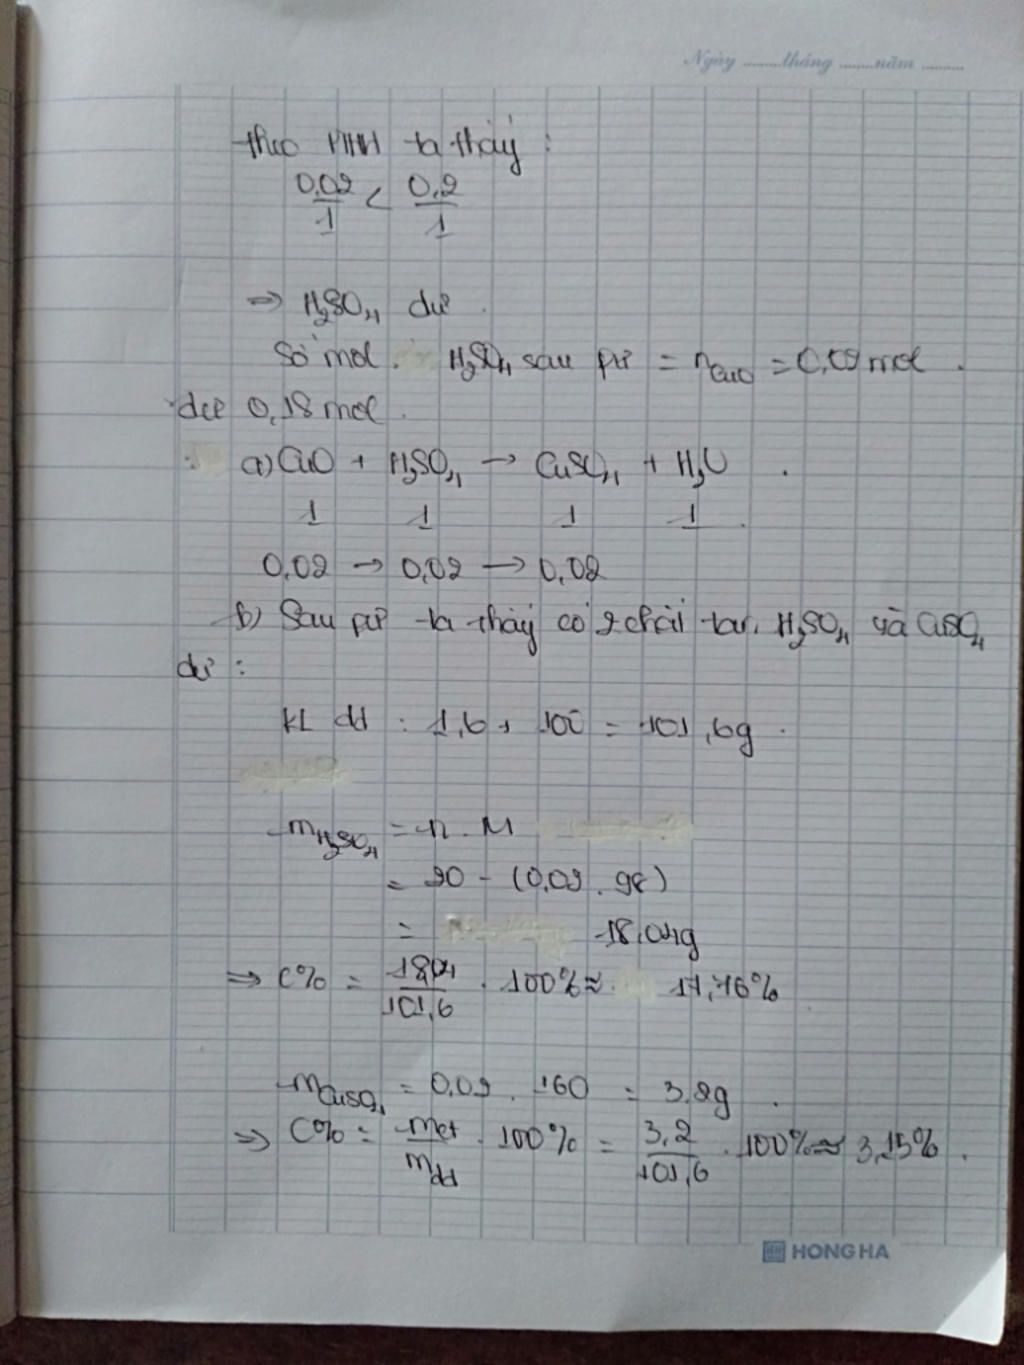 Ngày ........tháng ........năm ..........
theo PTHH ta thấy :
0,02/1 < 0,2/1
=> H₂SO₄ dư .
Số mol . H₂SO₄ sau pư = nCuO = 0,02 mol .
dư 0,18 mol .
a) CuO + H₂SO₄ → CuSO₄ + H₂O .
1 1 1 1 .
0,02 → 0,02 → 0,02
b) Sau pư ta thấy có 2 chất tan. H₂SO₄ và CuSO₄
dư :
KL dd : 1,6 + 100 = 101,6g .
mH₂SO₄ = n . M
= 20 - (0,02 . 98)
= 18,04g
=> C% = 18,04/101,6 . 100% ≈ 17,76%
mCuSO₄ = 0,02 . 160 = 3,2g .
=> C% = mct/mdd . 100% = 3,2/101,6 . 100% ≈ 3,15% .
HONG HA